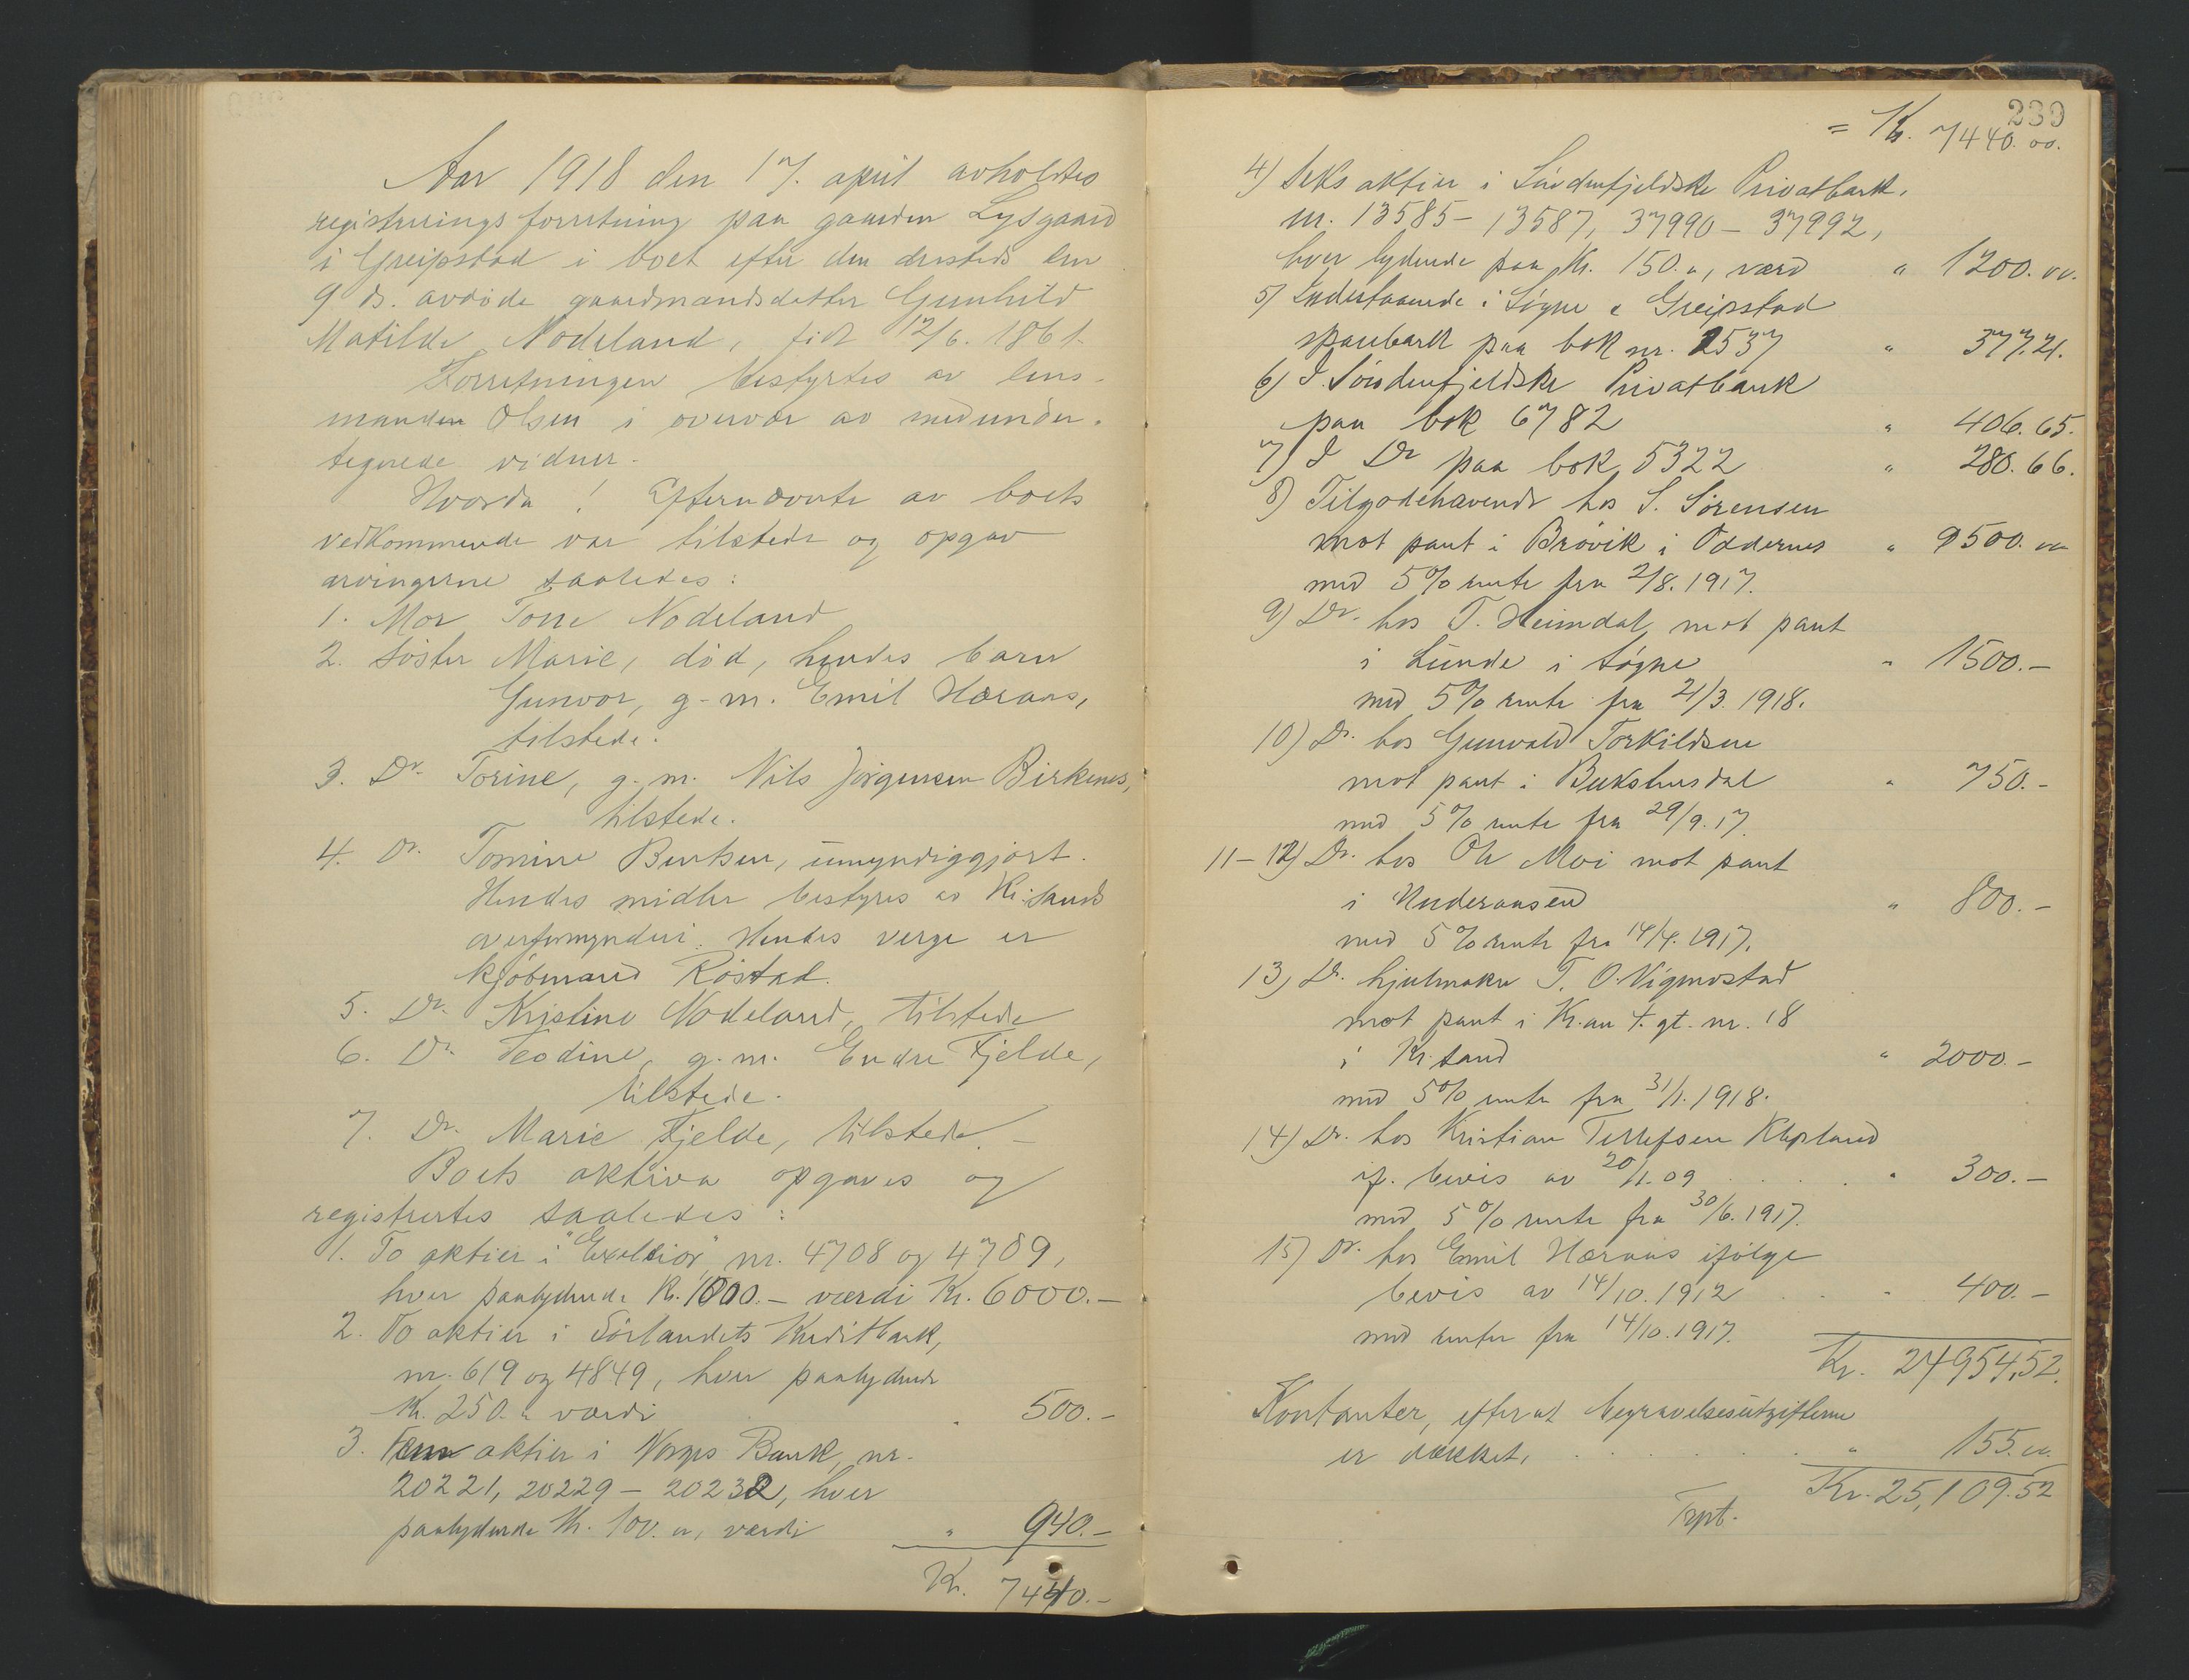 Aar 1918 den 17. april avholdtes
registreringsforretning paa gaarden Lysgaard
i Greipstad i boet efter den dersteds den
9 ds. avdöde gaardmandsdatter Gunhild
Matilde Nodeland, född 12/6. 1861.
Forretningen bestyrtes av lens-
manden Olsen i overvær av medunder-
tegnede vidner.
Hvorda! Efternævnte av boets
vedkommende var tilstede og opgav
arvingerne saaledes:
1. Mor Tone Nodeland
2. Söster Marie, död, hendes barn
Gunvor, g. m. Emil Høraas,
tilstede.
3. Do. Torine, g. m. Nils Jörgensen Birkenes,
tilstede.
4. Do. Tomine Bentsen, umyndiggjort.
Hendes midler bestyres av Kr.sands
overformynderi. Hendes verge er
kjöbmand Röstad.
5. Do. Kristine Nodeland, tilstede
6. Do. Teodine, g. m. Endre Fjelde,
tilstede.
7. Do. Marie Fjelde, tilstede. -
Boets aktiva opgaves og
registrertes saaledes:
1. To aktier i "Exelsior" nr. 4708 og 4709,
hver paalydende Kr. 1000.- værdi Kr. 6000.-
2. To aktier i Sörlandets Kreditbank,
nr. 619 og 4849, hver paalydende
Kr. 250.- værdi " 500.-
3. Fem aktier i Norges Bank, nr.
20221, 20229 - 20232, hver
paalydende Kr. 100.00, værdi " 940.-
Kr. 7440.-
239
= Kr. 7440.00.
4) Seks aktier i Söndenfjeldske Privatbank,
nr. 13585 - 13587, 37990 - 37992,
hver lydende paa Kr. 150.00, værd " 1200.00.
5) Indestaaende i Sögne & Greipstad
sparebank paa bok nr. 2537 " 377.21.
6) I Söndenfjeldske Privatbank
paa bok 6782 " 406.65.
7) I Do paa bok 5322 " 280.66.
8) Tilgodehavende hos S. Sörensen
mot pant i Brövik i Oddernes " 9500.00
med 5% rente fra 2/8. 1917.
9) Do. hos T. Heimdal mot pant
i Lunde i Sögne " 1500.-
med 5% rente fra 21/3. 1918.
10) Do. hos Gunvald Torkildsen
mot pant i Bukshusdal " 750.-
med 5% rente fra 29/9. 17.
11-12) Do. hos Ole Moi mot pant
i Underaasen " 800.-
med 5% rente fra 14/4. 1917.
13) Do. hjulmaker T. O. Vigmostad
mot pant i Kr.an 4. gt. nr. 18
i Kr.sand " 2000.-
med 5% rente fra 31/1. 1918.
14) Do. hos Kristian Tellefsen Klepland
if. bevis av 20/11.09 . . . . " 300.-
med 5% rente fra 30/6. 1917.
15) Do. hos Emil Høraas ifölge
bevis av 14/10. 1912 . . " 400.-
med renter fra 14/10. 1917.
Kr. 24954,52.
Kontanter, efterat begravelsesutgifterne
er dækket, . . . . . " 155.00.
Kr. 25,109.52
Trpt.